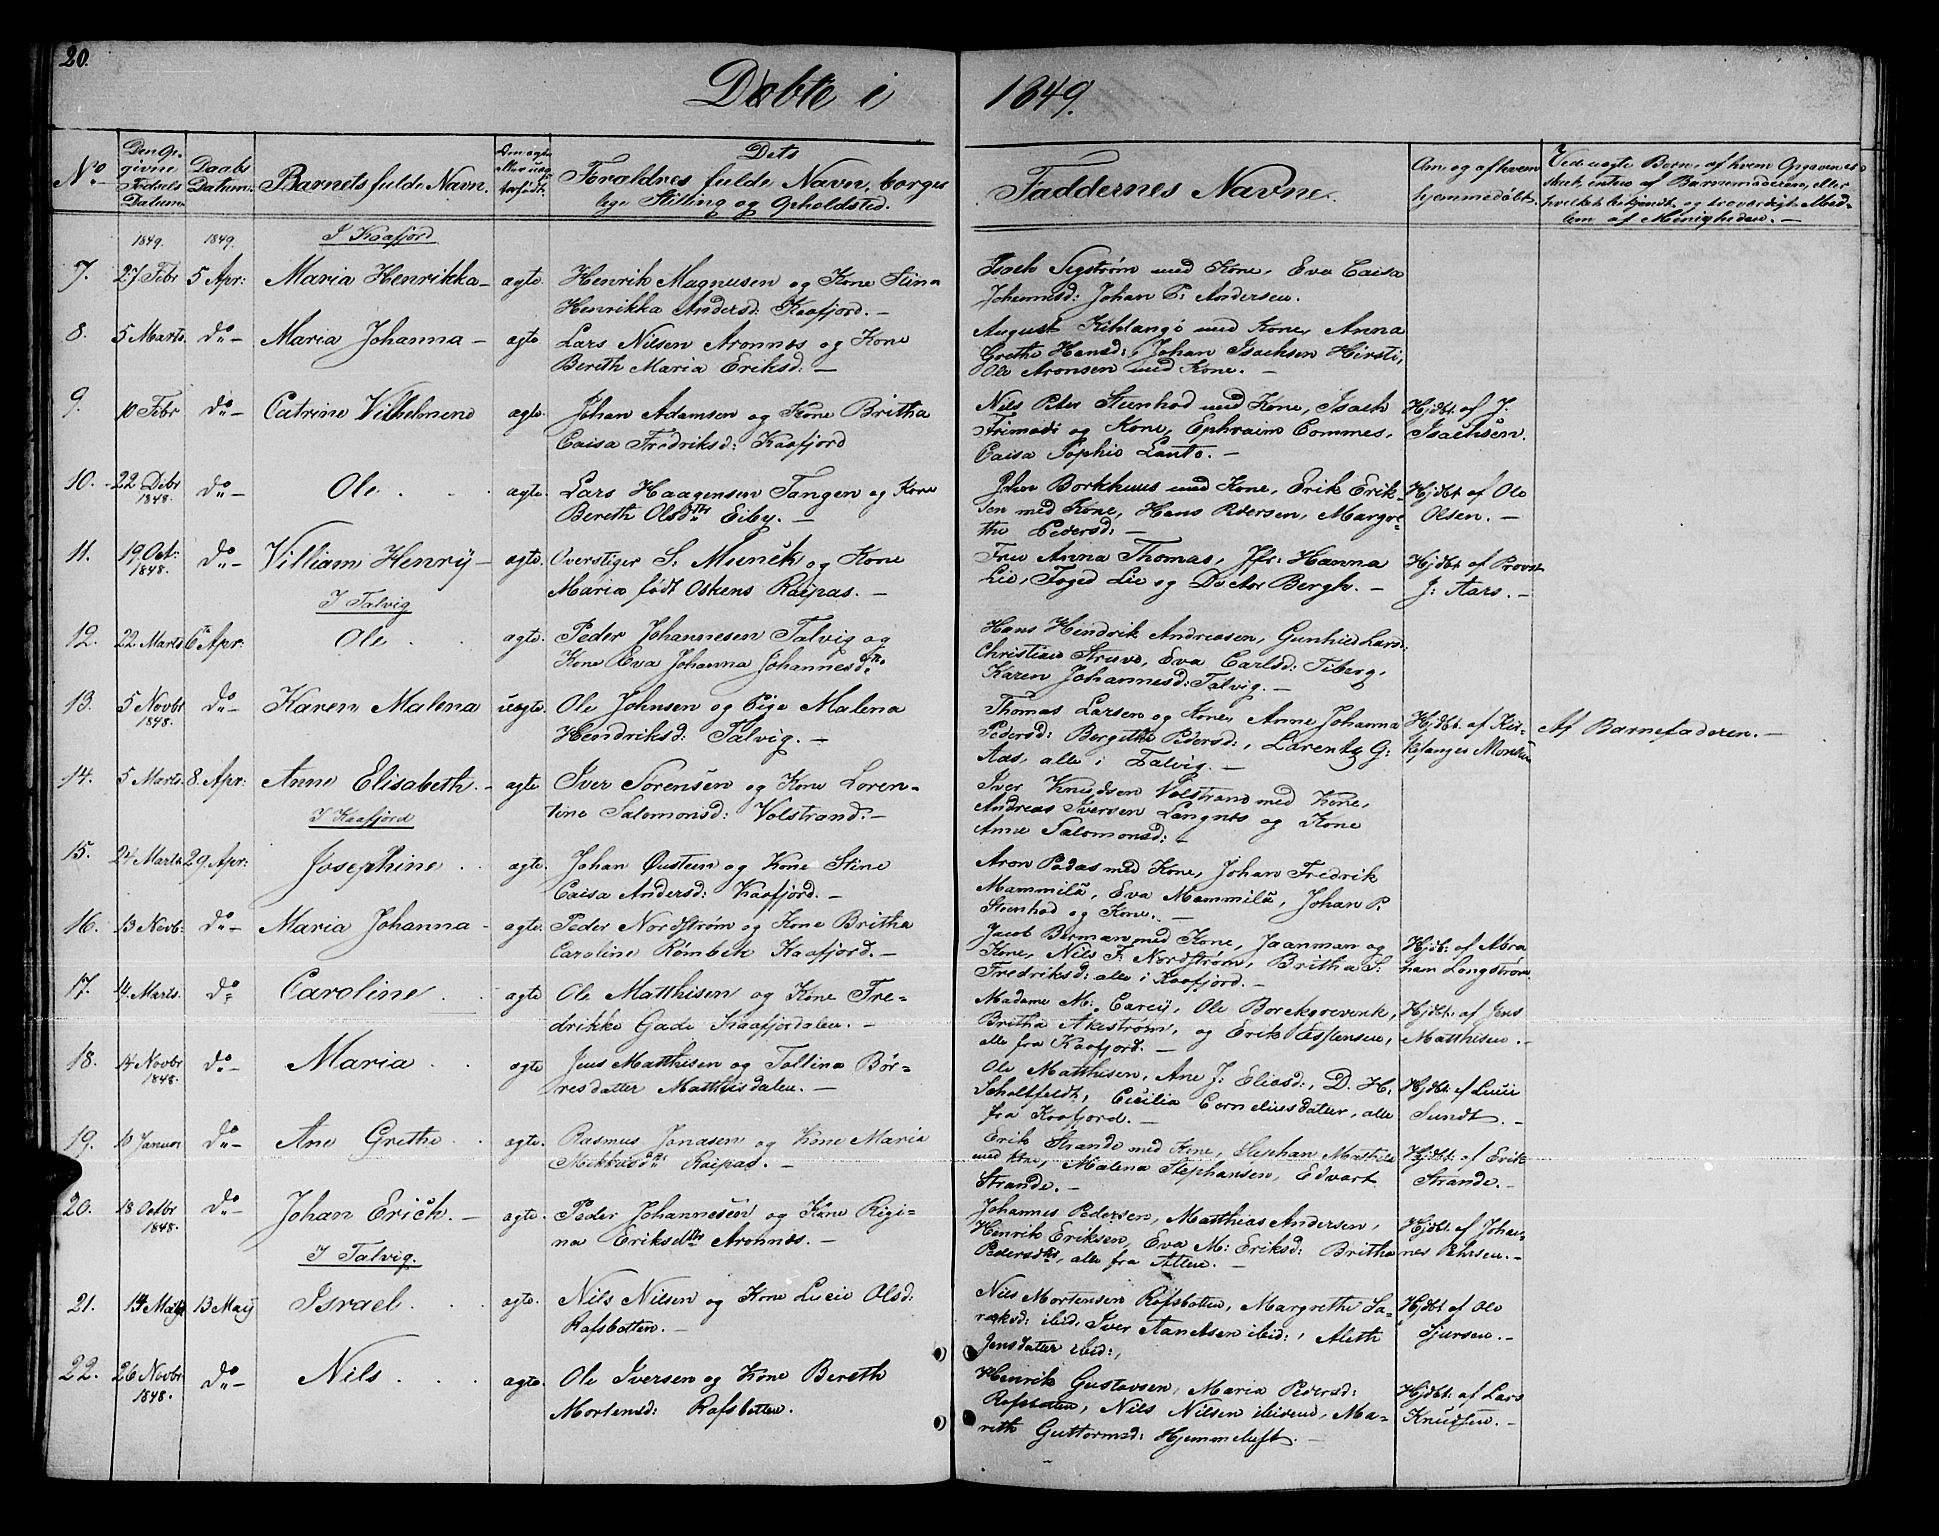 20.
Døbte i 1849.
No
Den Opgivne Fødsels Datum.
Daabs Datum.
Barnets fulde Navn.
Om ægte eller uægte født.
Dets Forældres fulde Navn, borgerlige Stilling og Opholdsted.
Faddernes Navne.
Om og af hvem hjemmedøbt.
Ved uægte Børn, af hvem Opgivelsen skeet, enten af Barnemoderen, eller hvilket bekjendt og troværdigt Medlem af Menigheden. —
1849. 1849. I Kaafjord
7. 27 Febr 5 Apr: Maria Henrikka — ægte. Henrik Magnusen og Kone Stina
Henrikka Andersd: Kaafjord. —
Isach Sigstrøm med Kone, Eva Caisa
Johannesd: Johan P. Andersen.
8. 5 Marts do — Maria Johanna — ægte Lars Nilsen Aronnæs og Kone
Bereth Maria Eriksd: —
August Kihlangi med Kone, Anna
Grethe Hansd:, Johan Isachsen Hirsti,
Ole Aronsen med Kone. —
9. 10 Febr do — Catrine Vilhelmine ægte. Johan Adamsen og Kone Britha
Caisa Fredriksd: Kaafjord
Nils Peter Steenhod med Kone, Isach
og Kone, Ephraim Commes,
Caisa Sophie Lanto. —
Hjdbt. af J.
Isachsen.
10. 22 Debr 1848. do — Ole ægte. Lars Haagensen Tangen og Kone
Bereth Olsdtr Eiby. —
John Borkhuus med Kone, Erik Erik-
sen med Kone, Hans Pedersen, Margre-
the Pedersd: —
Hjdbt af Ole
Olsen. —
11. 19 Oct: 1848. do — Villiam Henry — ægte. Overstiger S. Munck og Kone
Maria født Oskens Raipas. —
Frue Anna Thomas, Jfr: Hanna
Lie, Foged Lie og Doctor Bergh. —
Hjdbt af Provst
J: Aars. —
I Talvig
12. 22 Marts 6te Apr: Ole ægte. Peder Johannesen Talvig og
Kone Eva Johanna Johannesdtr.
Hans Hendrik Andreasen, Gunhild Larsd:
Christian Struve, Eva Carlsd: Tiberg,
Karen Johannesd: Talvig. —
13. 5 Novbr 1848. do — Karen Malena uægte. Ole Johnsen og Pige Malena
Hendriksd: Talvig. —
Thomas Larsen og Kone, Anne Johanna
Pedersd: Bergitte Pedersd:, Larentz G:
Aas, alle i Talvig. —
Hjdbt. af Kir-
kesanger Monsen
Af Barnefaderen. —
14. 5 Marts 8 Apr: Anne Elisabeth. — ægte Iver Sørensen og Kone Loren-
tine Salomonsd: Volstrand. —
Iver Knudsen Volstrand med Kone,
Andreas Iversen Langnes og Kone
Anne Salomonsd: —
I Kaafjord
15. 24 Marts 29 Apr: Josephine ægte. Johan Øusteen og Kone Stine
Caisa Andersd: Kaafjord. —
Aron Padas med Kone, Johan Fredrik
Mammilä, Eva Mammilä, Johan P.
Steenhod og Kone. —
16. 13 Novb: do — Maria Johanna — ægte. Peder Nordstrøm og Kone Britha
Caroline Rømbek Kaafjord. —
Jacob Berman med Kone, Jaanman og
Kone, Nils F. Nordstrøm, Britha S:
Fredriksd: alle i Kaafjord. —
Hjdbt: af Abra
ham Longstrøm
17. 14 Marts. do Caroline ægte Ole Matthisen og Kone Fre-
drikke Gade Kaafjordalen. —
Madame M: Carey, Ole Borchgrevink,
Britha Akestrøm, og Erik Estensen,
alle fra Kaafjord. —
Hjdbt: af Jens
Matthisen. —
18. 14 Novbr 1848. do — Maria ægte Jens Matthisen og Tallina Bør-
resdatter Matthisdalen. —
Ole Matthisen, Ane J: Eliasd:, D. H.
Scholtfeldt, Cecilia Corneliusdatter, alle
fra Kaafjord. —
Hjdbt: af Lucie
Sundt. —
19. 10 Januar do — Ane Grethe ægte. Rasmus Jonasen og Kone Maria
Mikkelsdtr Raipas. —
Erik Strande med Kone, Stephan Mathila
med Kone, Malena Stephansen, Edvart
Strande. —
Hjdbt: af Erik
Strande. —
20. 18 Octbr 1848. do — Johan Erich. — ægte. Peder Johannesen og Kone Rigi-
na Eriksdtr Aronnæs. —
Johannes Pedersen, Matthias Andersen,
Henrik Eriksen, Eva M: Eriksd: Britha
Pedersdtr, alle fra Alten. —
Hjdbt: af Johan-
nes Pehrsen. —
I Talvig.
21. 14 13 Maij Israel. ægte. Nils Nilsen og Kone Lucie Olsd:
Rafsbotten. —
Nils Mortensen Rafsbotten, Margrethe La-
raksd: ibid, Iver ibid:, Aleth
Jensdatter ibid:,
Hjdbt af Ole
Sjursen. —
22. 26 Novbr 1848. do — Nils ægte. Ole Iversen og Kone Bereth
Mortensd: Rafsbotten.
Henrik Gustavsen, Maria Pedersd:
Rafsbotten, Nils Nilsen ibidend, Ma-
reth Guttormsd: Hjemmeluft. —
Hjdbt: af Lars
Knudsen. —